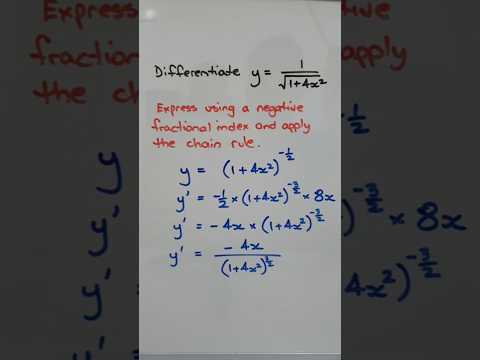 Differentiate y = 1/√(1+4x²)
Express using a negative
fractional index and apply
the chain rule.
y = (1+4x²)^(-1/2)
y' = -1/2 × (1+4x²)^(-3/2) × 8x
y' = -4x × (1+4x²)^(-3/2)
y' = -4x/(1+4x²)^(3/2)